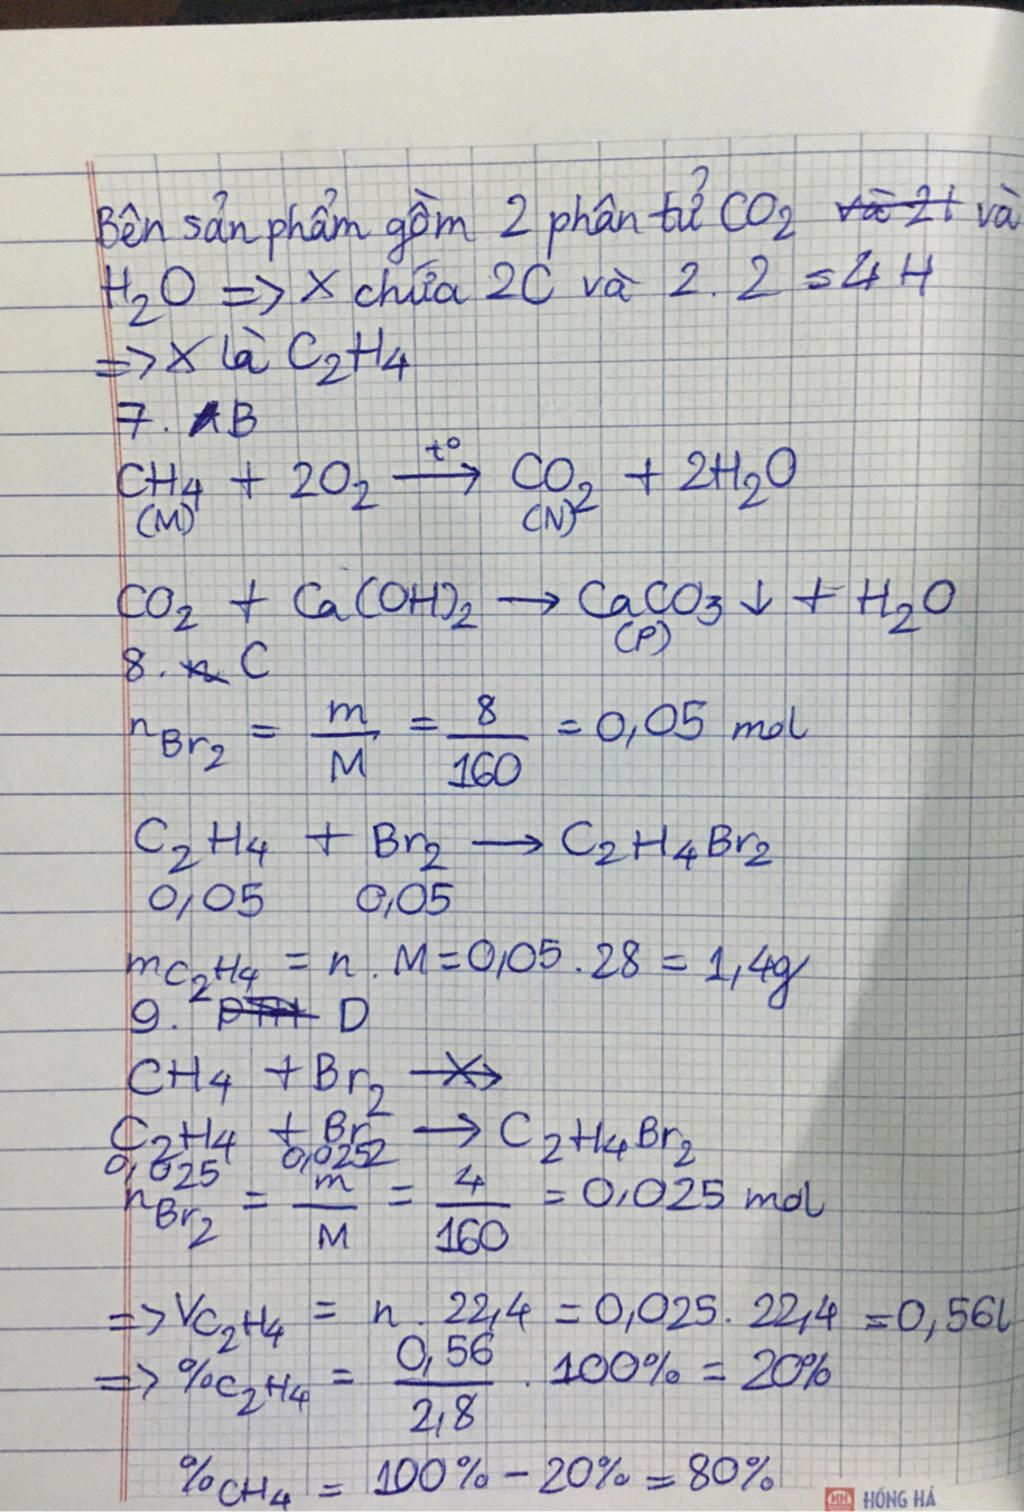 Bên sản phẩm gồm 2 phân tử CO₂ và 2t và
H₂O => X chứa 2C và 2.2 = 4H
=> X là C₂H₄
7. B
CH₄ + 2O₂ —t°→ CO₂ + 2H₂O
(M) (N)
CO₂ + Ca(OH)₂ → CaCO₃ ↓ + H₂O
(P)
8. n C
n Br₂ = m/M = 8/160 = 0,05 mol
C₂H₄ + Br₂ → C₂H₄Br₂
0,05 0,05
m C₂H₄ = n . M = 0,05 . 28 = 1,4g
9. D
CH₄ + Br₂ —X→
C₂H₄ + Br₂ → C₂H₄Br₂
0,025 0,025
n Br₂ = m/M = 4/160 = 0,025 mol
=> V C₂H₄ = n . 22,4 = 0,025 . 22,4 = 0,56l
=> % C₂H₄ = 0,56/2,8 . 100% = 20%
% CH₄ = 100% - 20% = 80%
HH HỒNG HÀ